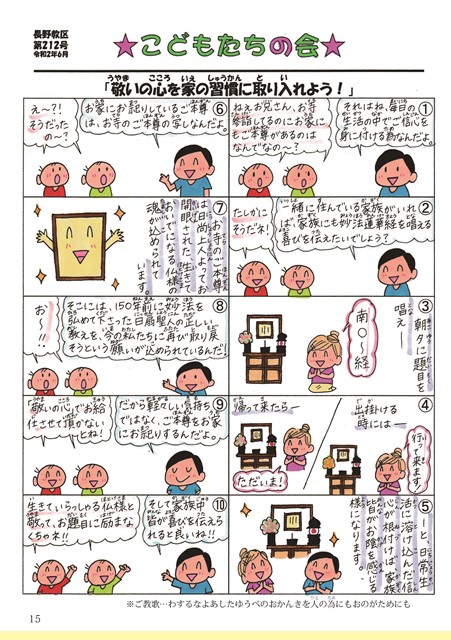 長野教区
第212号
令和2年6月
★こどもたちの会★
「敬いの心を家の習慣に取り入れよう！」
①
ねえお兄さん、お寺
参詣してるのにお家に
もご本尊があるのは
なんでなの～?
それはね、毎日の
生活の中でご信心を
身に付ける為なんだよ。
②
一緒に住んでいる家族がいれ
ば、家族にも妙法蓮華経を唱える
喜びを伝えたいでしょう?
たしかに
そうだネ!
③
朝夕に題目を
唱え―
南〇～経
④
出掛ける
時には―
行って来ます!
帰って来たら―
ただいま!
⑤
―と、日常生
活に溶け込んだ信
心が根付けば、家族
皆がお陰を感じる
様になります。
⑥
お家にお祀りしているご本尊
は、お寺のご本尊の写しなんだよ。
え～?!
そうだった
の～?
⑦
お寺のご本尊
は日尚上人によってお
開眼された、生きて
おいでになる仏様の
魂が込められて
います。
⑧
そこには、150年前に妙法を
弘めて下さった日扇聖人の正しい
教えを、今の私たちに再び取り戻
そうという願いが込められているんだ!
お～!!
⑨
だから軽々しい気持ち
ではなく、ご本尊をお家
にお祀りするんだよ。
敬いの心でお給
仕させて頂かない
とね!
⑩
そして家族中
皆が喜びを伝えら
れると良いね!!
生きていらっしゃる仏様と
敬って、お題目に励まな
くちゃネ!!
※ご教歌…わするなよあしたゆうべのおかんきを人の為にもおのがためにも
15